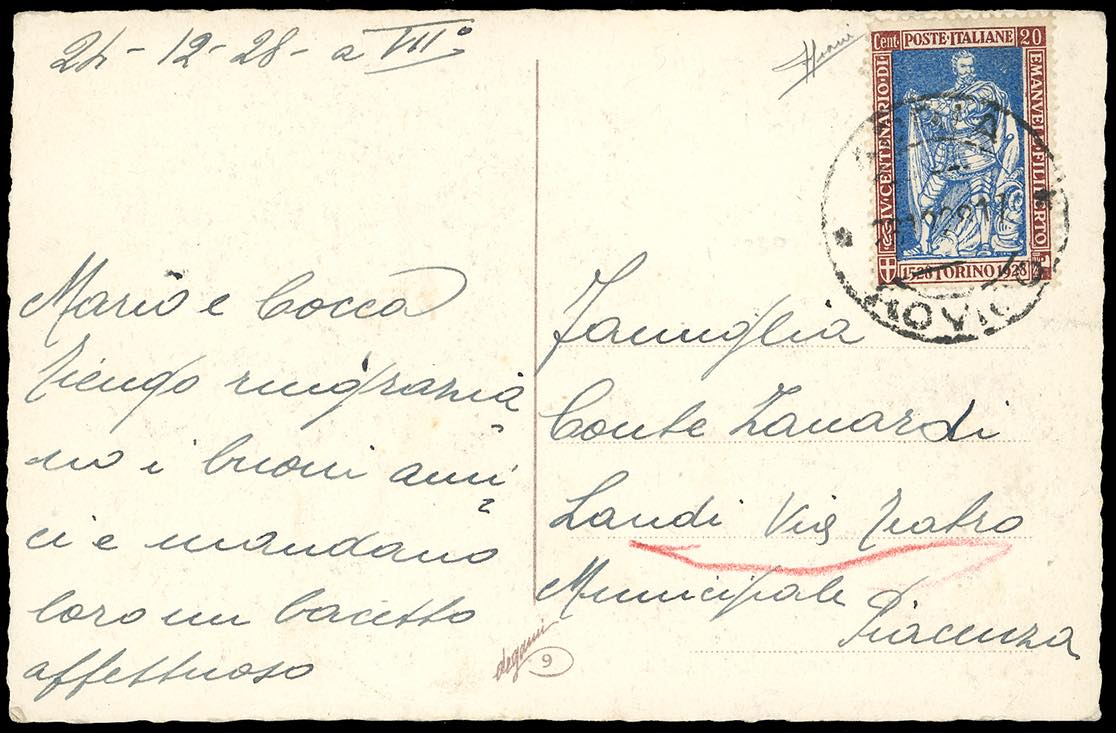 24-12-28-a VII°
Cent. POSTE ITALIANE 20
IV CENTENARIO DI
EMANVEL FILIBERTO
1528 TORINO 1928
Mario e Cocca
Vengo ringrazia
no i buoni ami
ci e mandano
loro un bacetto
affettuoso
Famiglia
Conte Zanardi
Landi Via Teatro
Municipale
Piacenza
degami
9